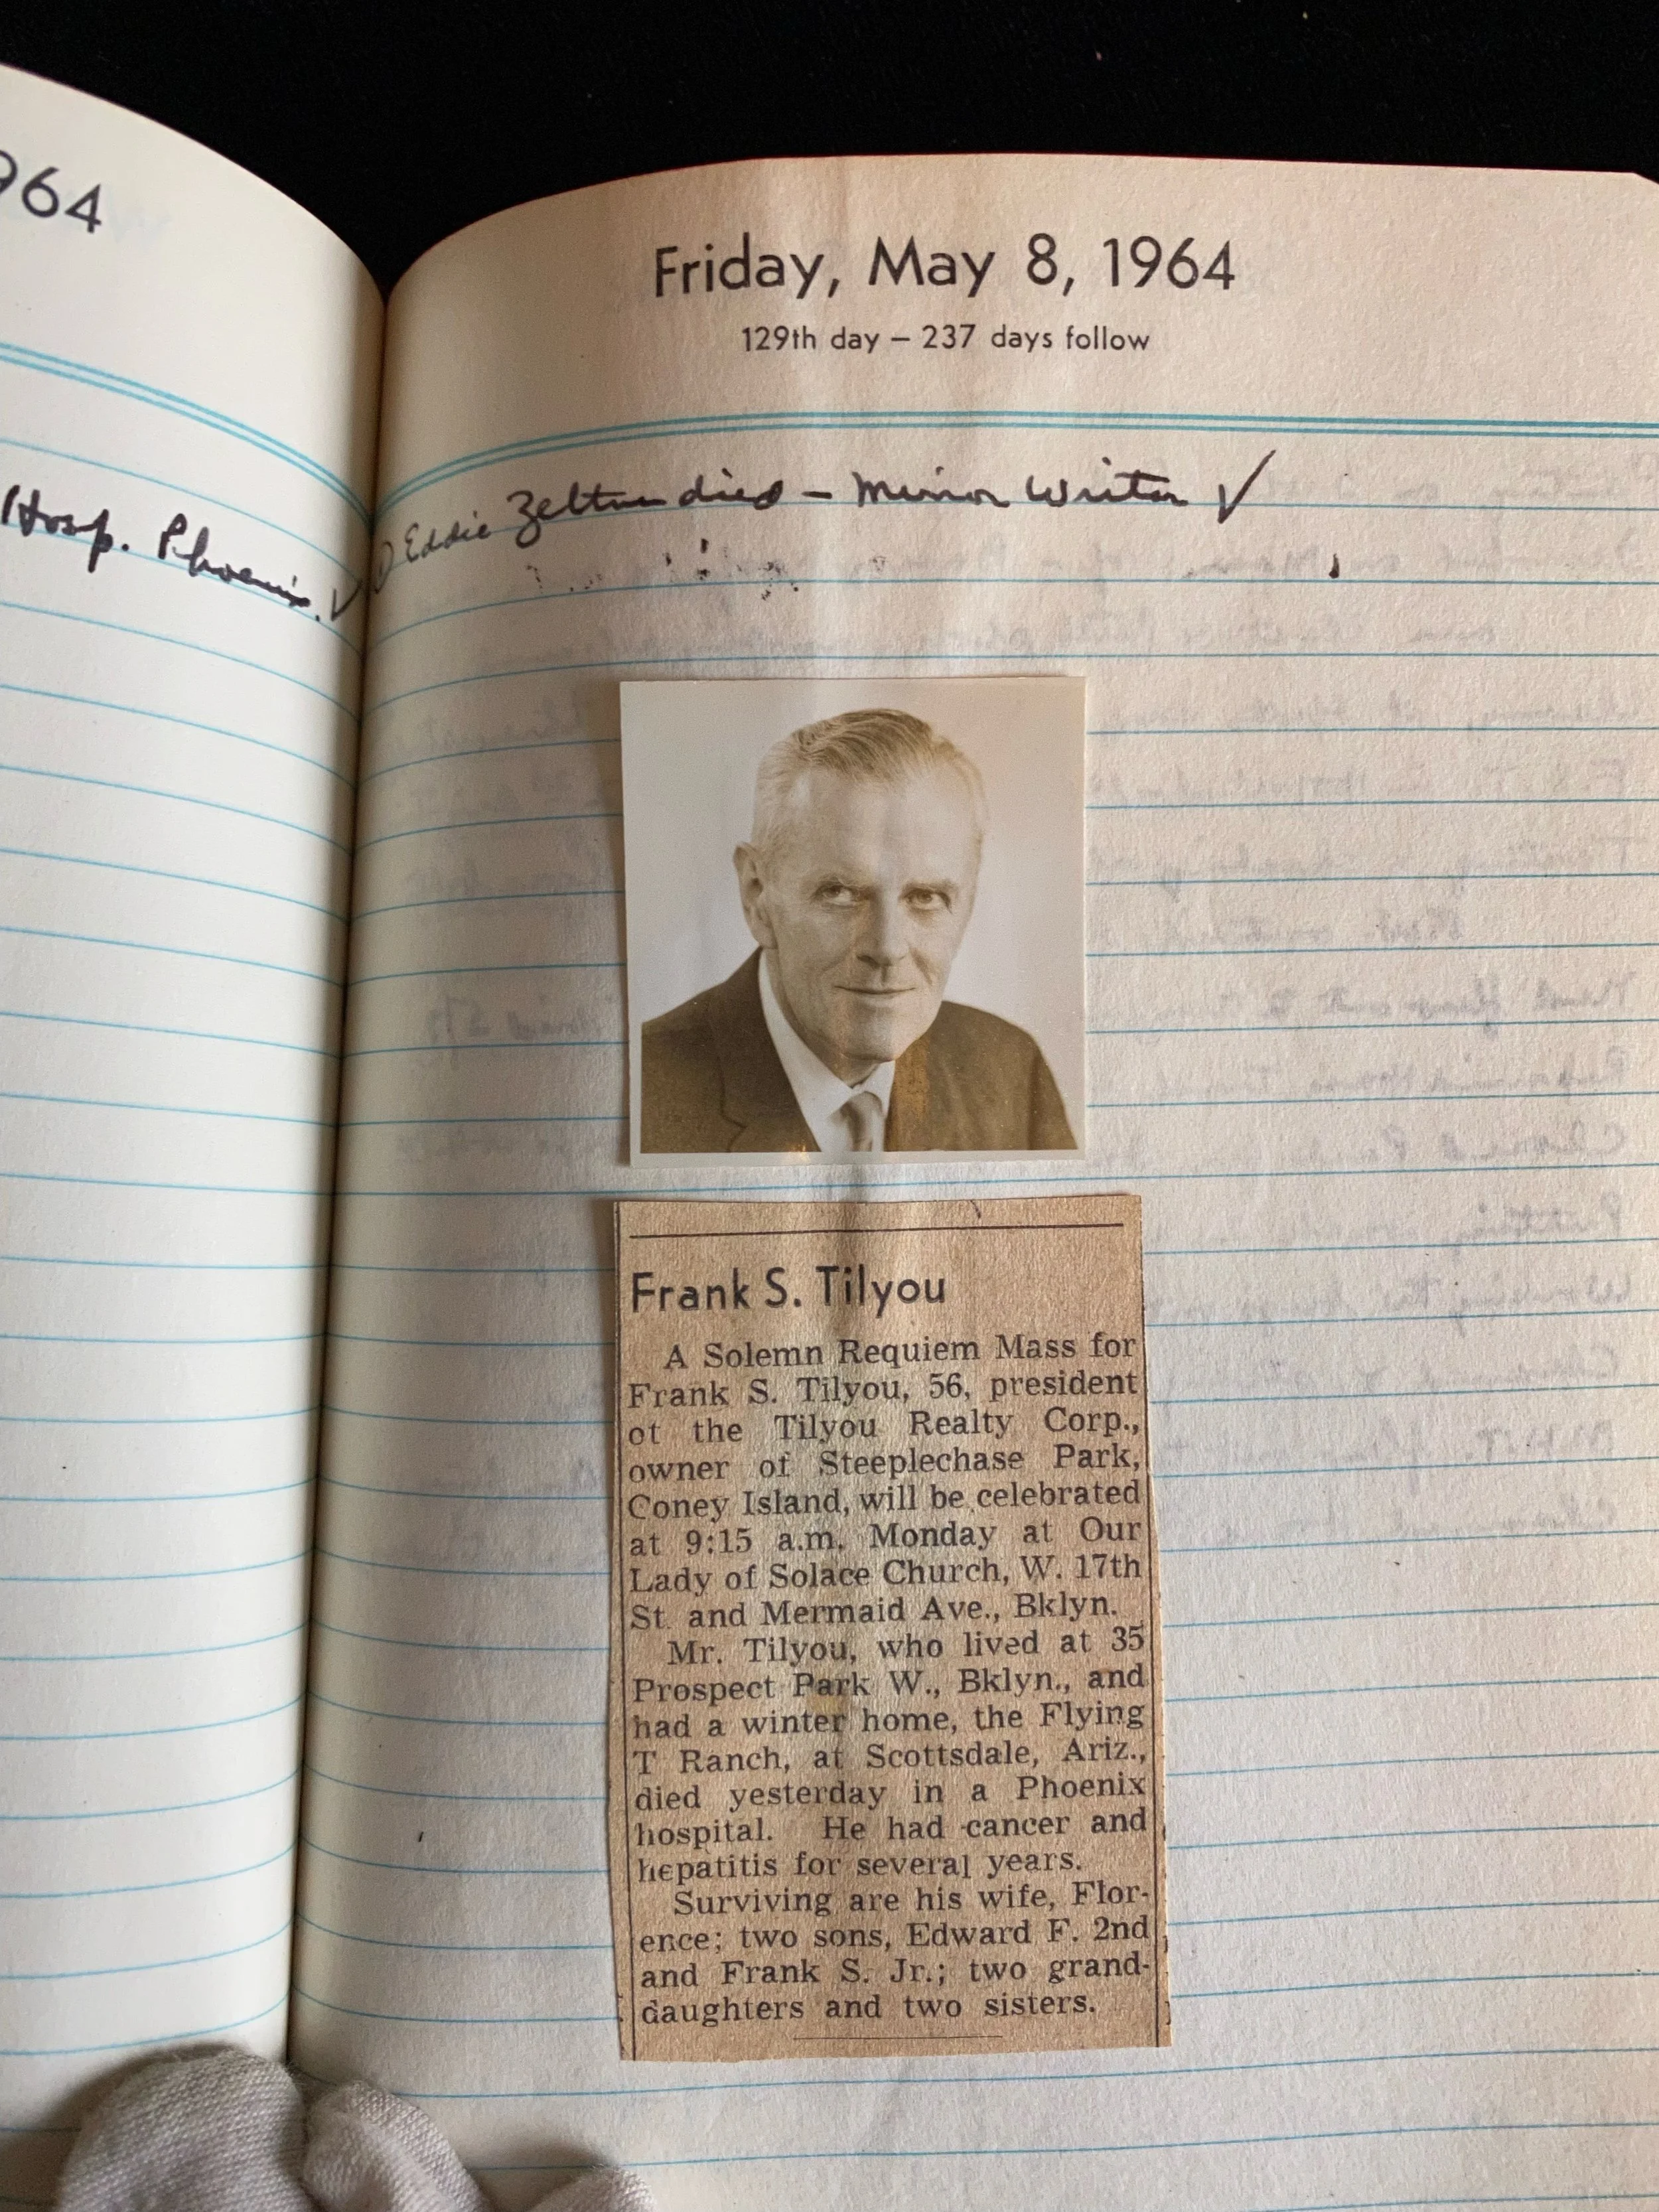 964
Hosp. Phoenix. ✓
Friday, May 8, 1964
129th day – 237 days follow
Eddie died – Mirror Writer ✓
Frank S. Tilyou
A Solemn Requiem Mass for
Frank S. Tilyou, 56, president
ot the Tilyou Realty Corp.,
owner of Steeplechase Park,
Coney Island, will be celebrated
at 9:15 a.m. Monday at Our
Lady of Solace Church, W. 17th
St. and Mermaid Ave., Bklyn.
Mr. Tilyou, who lived at 35
Prospect Park W., Bklyn., and
had a winter home, the Flying
T Ranch, at Scottsdale, Ariz.,
died yesterday in a Phoenix
hospital. He had cancer and
hepatitis for several years.
Surviving are his wife, Flor-
ence; two sons, Edward F. 2nd
and Frank S. Jr.; two grand-
daughters and two sisters.